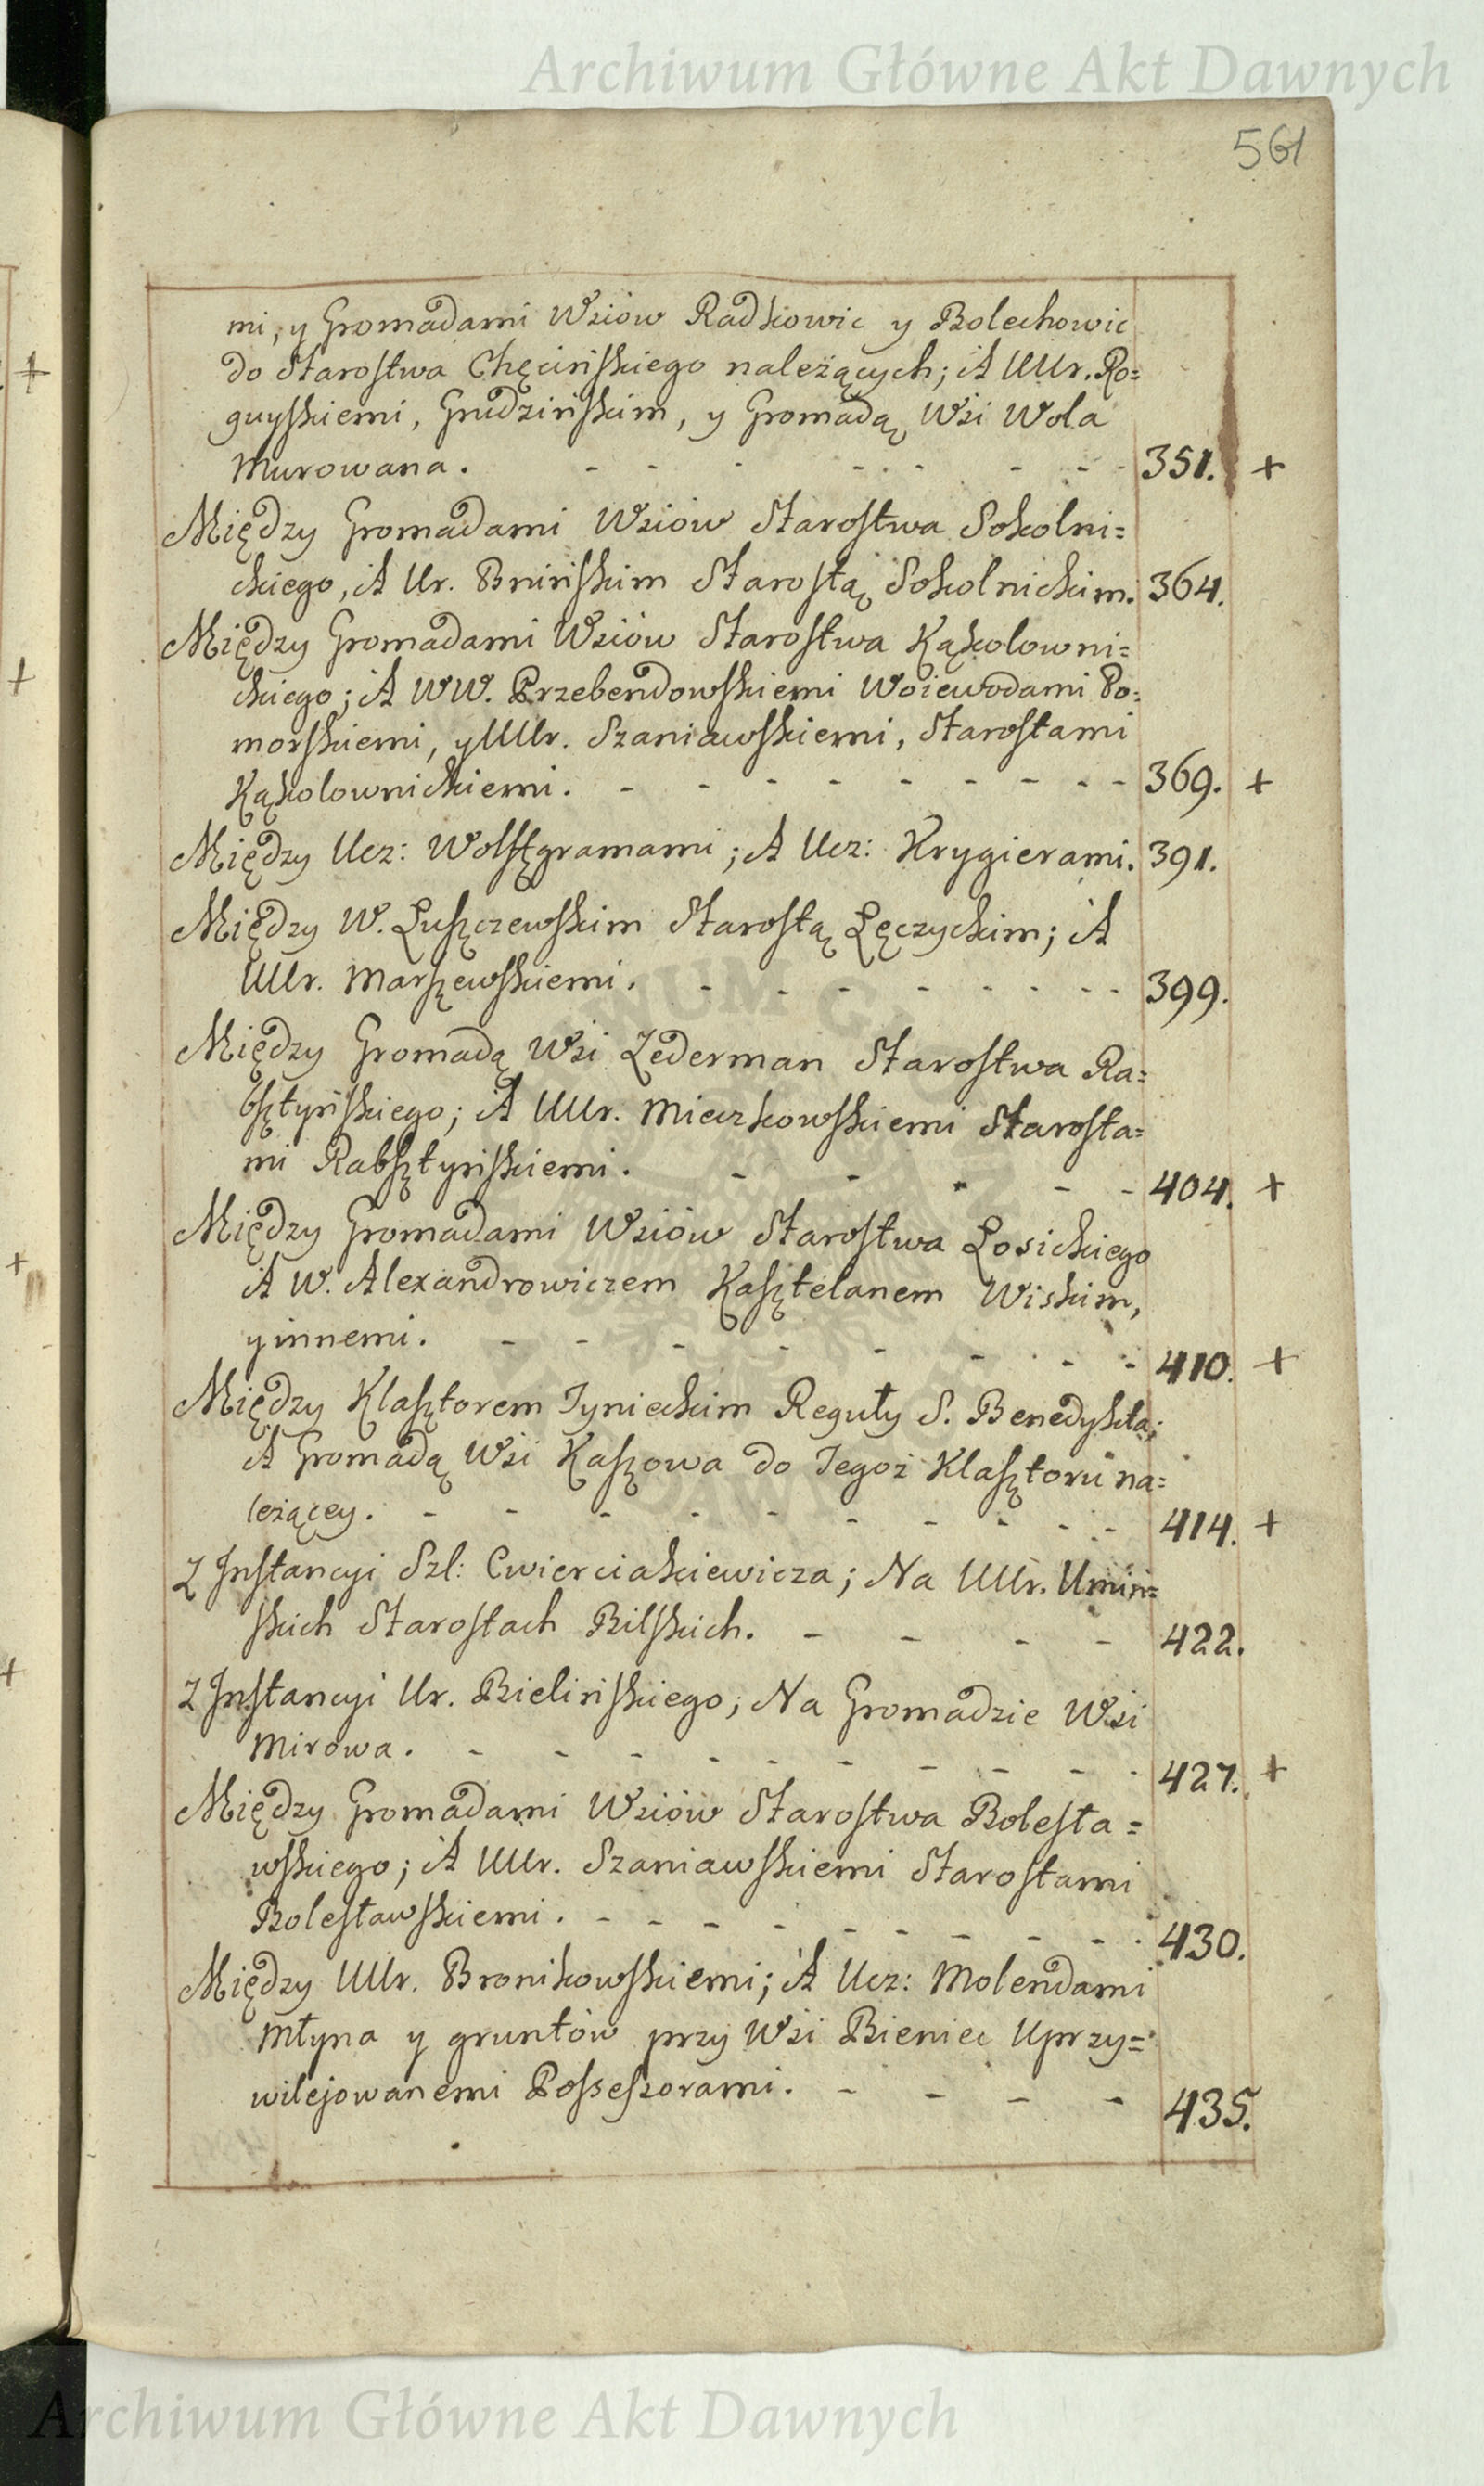 Archiwum Główne Akt Dawnych
561
mi, y Gromadami Wsiów Radkowic y Bolechowic
do Starostwa Chęcińskiego należących; A UUr. Ro=
guyskiemi, Grudzińskim, y Gromadą Wsi Wola
Murowana. - - - - - - - - 351. +
Między Gromadami Wsiów Starostwa Sokolni=
ckiego, A Ur. Bnińskim Starostą Sokolnickim. 364.
Między Gromadami Wsiów Starostwa Kąkolowni=
ckiego; A WW. Przebendowskiemi Woiewodami Po=
morskiemi, y UUr. Szaniawskiemi, Starostami
Kąkolownickiemi. - - - - - - - - - 369. +
Między Ucz: Wolfsgramami; A Ucz: Krygierami. 391.
Między W. Luszczewskim Starostą Łęczyckim; A
UUr. Marszewskiemi. - - - - - - - - 399.
Między Gromadą Wsi Zederman Starostwa Ra=
bsztyńskiego; A UUr. Mieczkowskiemi Starosta=
mi Rabsztyńskiemi. - - - - - 404. +
Między Gromadami Wsiów Starostwa Łosickiego
A W. Alexandrowiczem Kasztelanem Wiskim,
y innemi. - - - - - - - - 410. +
Między Klasztorem Tynieckim Reguły S. Benedykta;
A Gromadą Wsi Kaszowa do Tegoż Klasztoru na=
leżącey. - - - - - - - - - - 414. +
Z Instancyi Szl: Cwierciakiewicza; Na UUr. Umiń=
skich Starostach Bilskich. - - - - 422.
Z Instancyi Ur. Bielińskiego; Na Gromadzie Wsi
Mirowa. - - - - - - - - - - 427. +
Między Gromadami Wsiów Starostwa Bolesła=
wskiego; A UUr. Szaniawskiemi Starostami
Bolesławskiemi. - - - - - - - - - 430.
Między UUr. Bronikowskiemi; A Ucz: Molendami
Młyna y gruntów przy Wsi Bieniec Uprzy=
wilejowanemi Possessorami. - - - - 435.
Archiwum Główne Akt Dawnych